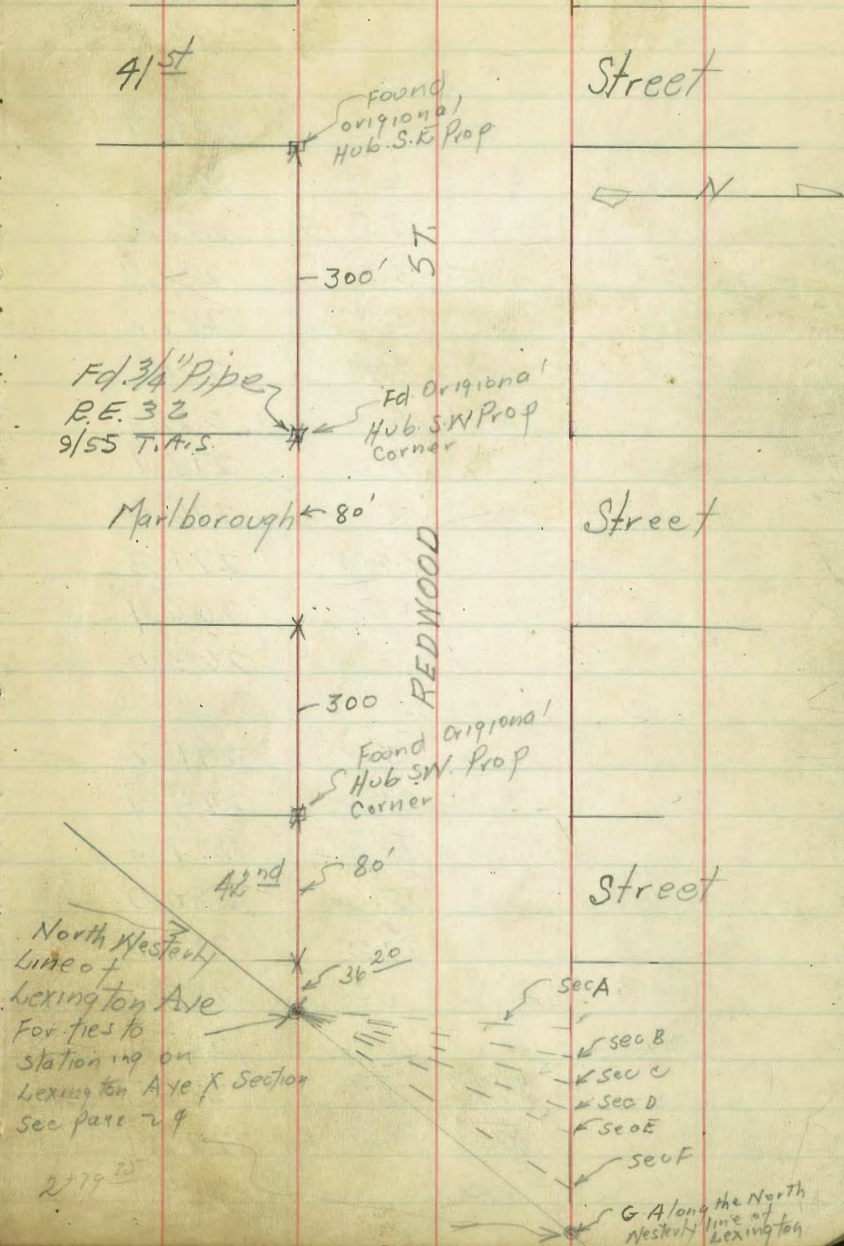 41st
Street
Found
origional
Hub. S.E Prop
N
ST.
300'
Fd. 3/4" Pipe
R.E. 32
9/55 T.A.S.
Fd Origional
Hub. S.W Prop
Corner
Marlborough
80'
Street
REDWOOD
300
Found Origional
Hub S.W. Prop
Corner
42nd
80'
Street
North Westerly
Line of
Lexington Ave
For ties to
stationing on
Lexington Ave X Section
See page
36 20
Sec A
sec B
sec C
sec D
sec E
sec F
2+79 75
G Along the North
Westerly line of
Lexington